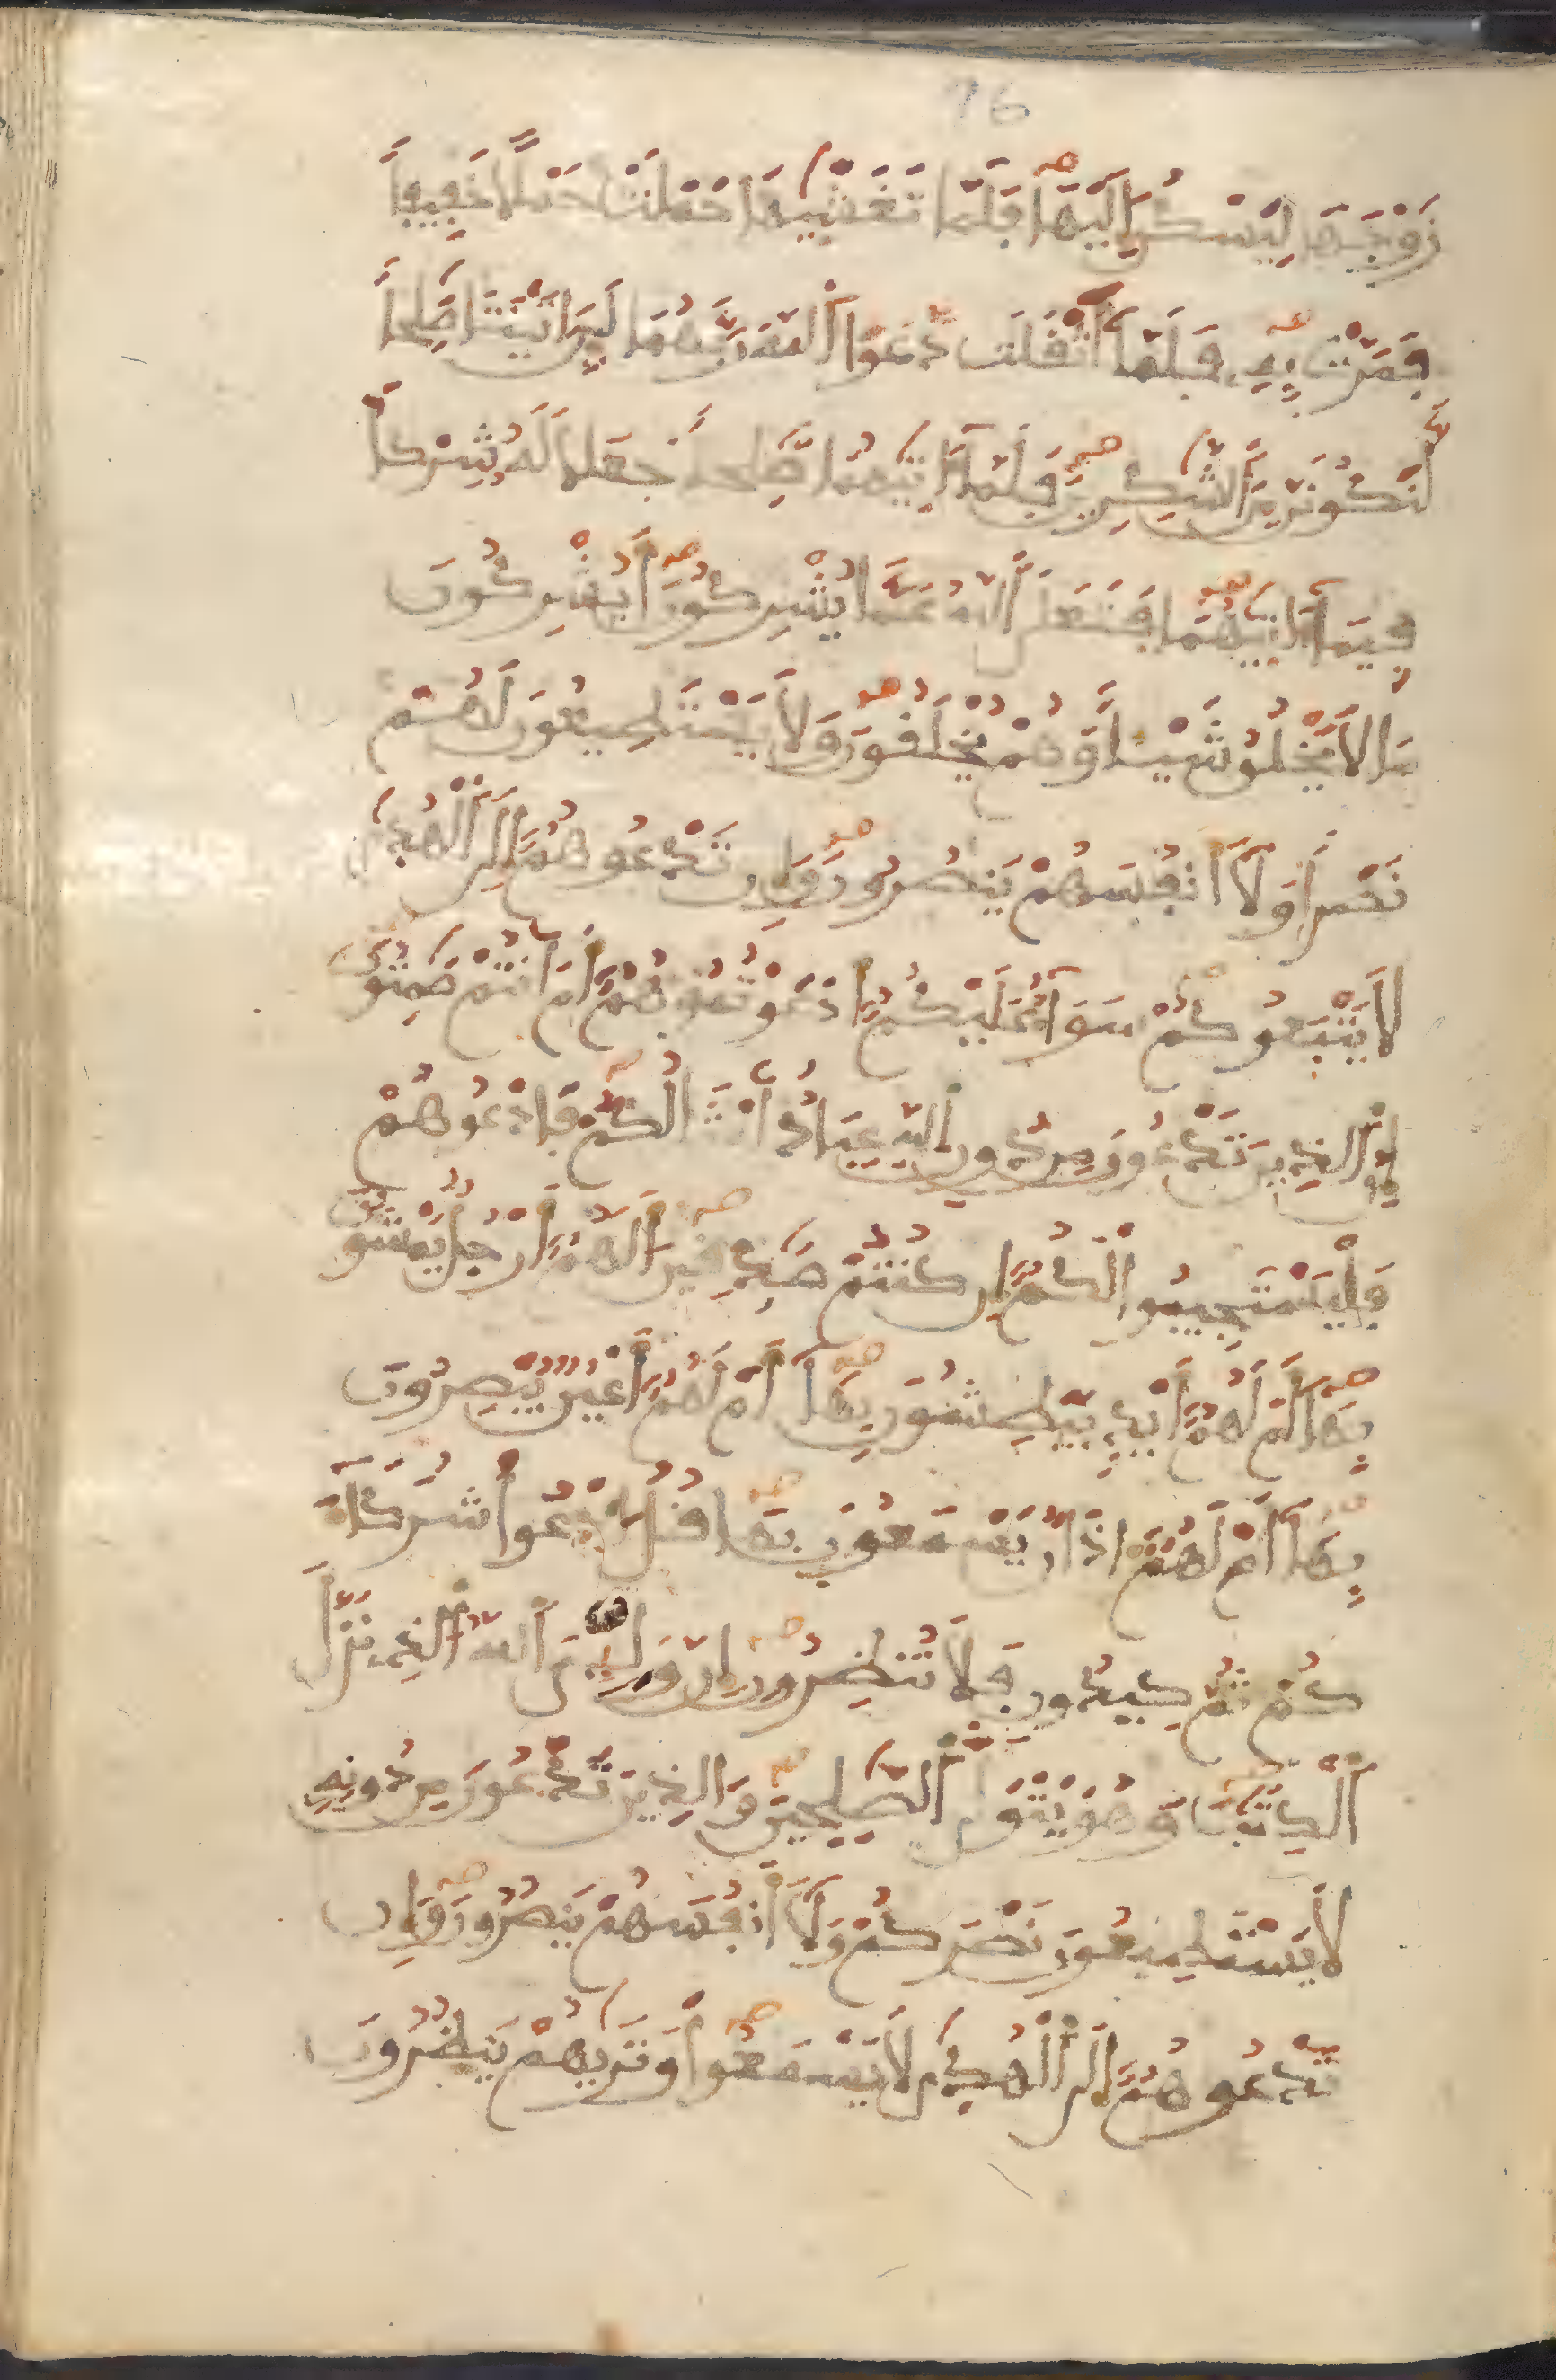 76
زَوْجَهَا لِيَسْكُنَ إِلَيْهَا فَلَمَّا تَغَشّٰيهَا حَمَلَتْ حَمْلًا خَفِيفاً
فَمَرَّتْ بِهِ فَلَمَّا أَثْقَلَت دَّعَوَا اَللَّهَ رَبَّهُمَا لَئِنَ اٰتَيْتَنَا صَٰلِحاً
لَّنَكُونَنَّ مِنَ اَلشَّٰكِرِينَ فَلَمَّا ءَاتَيٰهُمَا صَٰلِحاً جَعَلَا لَهُ شِرْكاً
فِيمَا ءَاتَيٰهُمَا فَتَعَٰلَى اَللَّهُ عَمَّا يُشْرِكُونَ أَيُشْرِكُونَ
مَا لَا يَخْلُقُ شَيْـاً وَهُمْ يُخْلَقُونَ وَلَا يَسْتَطِيعُونَ لَهُمْ
نَصْراً وَلَا أَنفُسَهُمْ يَنصُرُونَ وَإِن تَدْعُوهُمُ إِلَى اَلْهُدٰى
لَا يَتْبَعُوكُمْ سَوَآءٌ عَلَيْكُمُ أَدَعَوْتُمُوهُمُ أَمَ اَنتُمْ صَٰمِتُونَ
إِنَّ اَلذِينَ تَدْعُونَ مِن دُونِ اِللَّهِ عِبَادٌ أَمْثَالُكُمْ فَادْعُوهُمْ
فَلْيَسْتَجِيبُوا لَكُمُ إِن كُنتُمْ صَٰدِقِينَ أَلَهُمُ أَرْجُلٌ يَمْشُونَ
بِهَا أَمْ لَهُمُ أَيْدٍ يَبْطِشُونَ بِهَا أَمْ لَهُمُ أَعْيُنٌ يُبْصِرُونَ
بِهَا أَمْ لَهُمُ ءَاذَانٌ يَسْمَعُونَ بِهَا قُلُ ادْعُوا شُرَكَآءَ
كُمْ ثُمَّ كِيدُونِ فَلَا تُنظِرُونِ إِنَّ وَلِيِّيَ اَللَّهُ اُلذِى نَزَّلَ
اَلْكِتَٰبَ وَهُوَ يَتَوَلَّى اَلصَّٰلِحِينَ وَالذِينَ تَدْعُونَ مِن دُونِهِ
لَا يَسْتَطِيعُونَ نَصْرَكُمْ وَلَا أَنفُسَهُمْ يَنصُرُونَ وَإِن
تَدْعُوهُمُ إِلَى اَلْهُدٰى لَا يَسْمَعُوا وَتَرٰيهُمْ يَنظُرُونَ